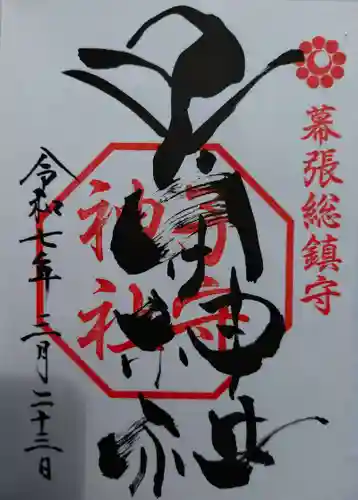 幕張総鎮守
子守神社
子守神社
令和七年三月二十三日